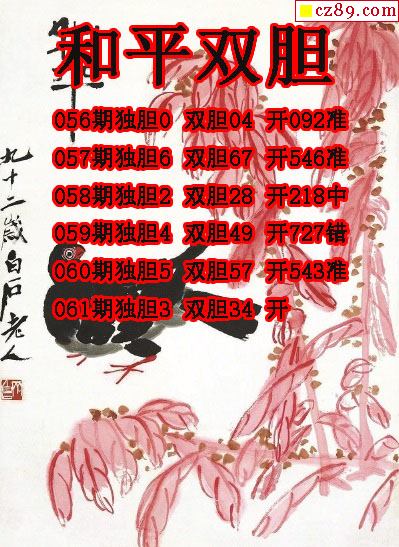 cz89.com
和平双胆
056期独胆0 双胆04 开092准
057期独胆6 双胆67 开546准
058期独胆2 双胆28 开218中
059期独胆4 双胆49 开727错
060期独胆5 双胆57 开543准
061期独胆3 双胆34 开
九十二歲白石老人